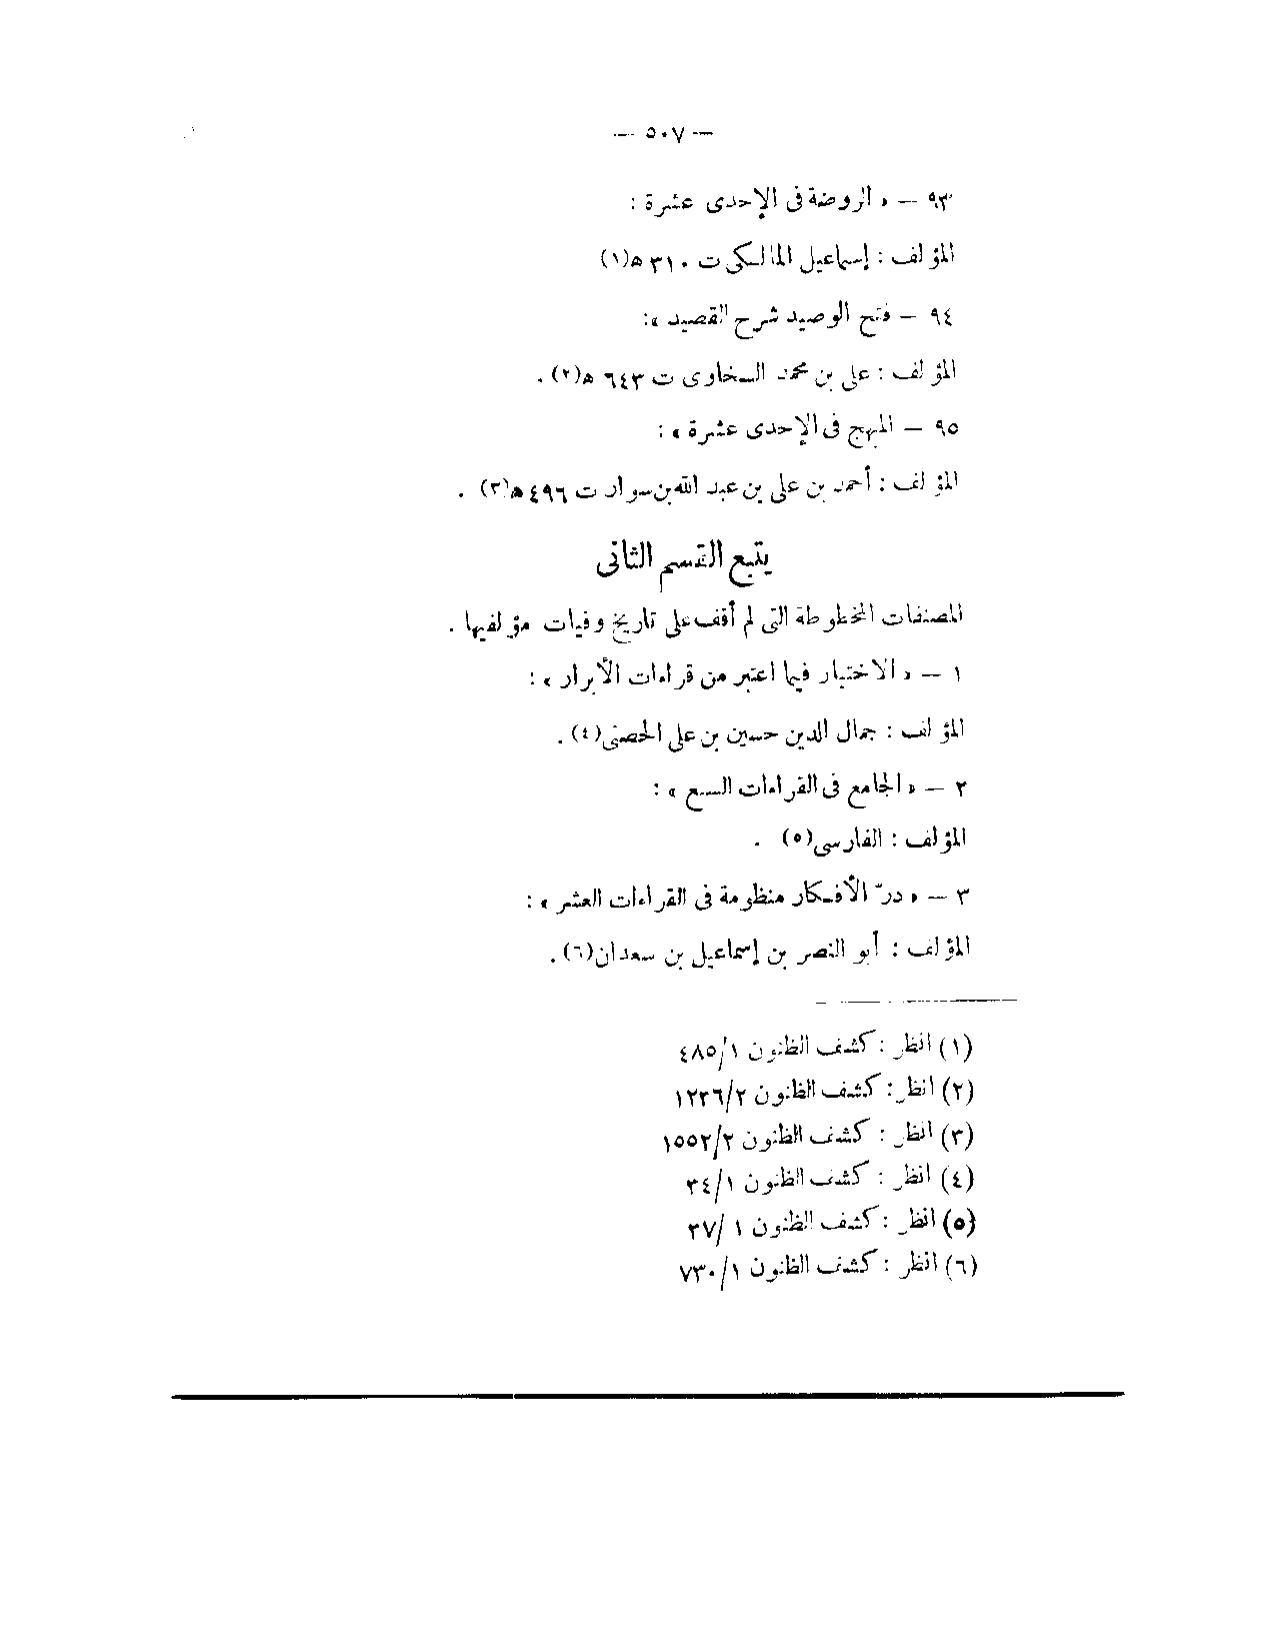 — ٥٠٧ —
٩٣ — « الروضة فى الإحدى عشرة :
المؤلف : إسماعيل المالكى ت ٣١٠ ه(١)
٩٤ — فتح الوصيد شرح القصيد »:
المؤلف : على بن محمد السخاوى ت ٦٤٣ ه(٢) .
٩٥ — المبهج فى الإحدى عشرة » :
المؤلف : أحمد بن على بن عبد الله بن سوار ت ٤٩٦ ه(٣) .
يتبع القسم الثانى
المصنفات المخطوطة التى لم أقف على تاريخ وفيات مؤلفيها .
١ — « الاختيار فيما اعتبر من قراءات الأبرار » :
المؤلف : جمال الدين حسين بن على الحصنى(٤) .
٢ — « الجامع فى القراءات السبع » :
المؤلف : الفارسى(٥) .
٣ — « درّ الأفكار منظومة فى القراءات العشر » :
المؤلف : أبو النصر بن إسماعيل بن سعدان(٦) .
(١) انظر : كشف الظنون ٤٨٥/١
(٢) انظر : كشف الظنون ١٢٣٦/٢
(٣) انظر : كشف الظنون ١٥٥٢/٢
(٤) انظر : كشف الظنون ٣٤/١
(٥) انظر : كشف الظنون ٣٧/١
(٦) انظر : كشف الظنون ٧٣٠/١